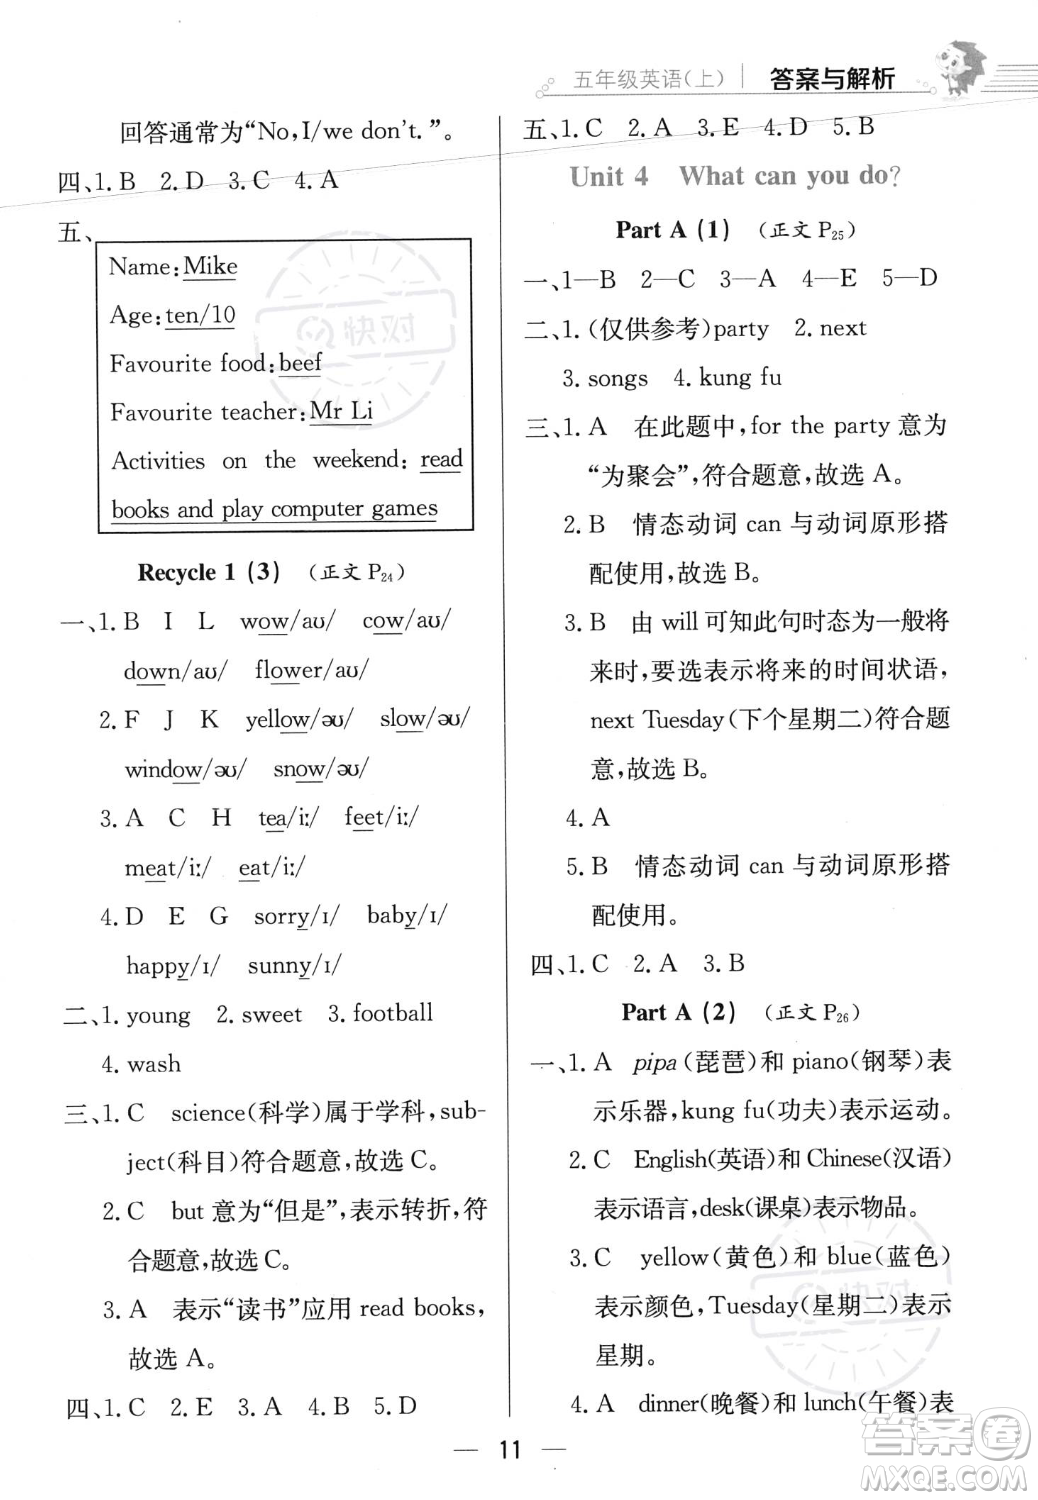 五年级英语(上) 答案与解析
回答通常为“No,I/we don't.”。
四、1.B 2.D 3.C 4.A
五、
Name:Mike
Age:ten/10
Favourite food:beef
Favourite teacher:Mr Li
Activities on the weekend: read
books and play computer games
Recycle 1 (3) (正文 P24)
一、1.B I L wow/aʊ/ cow/aʊ/
down/aʊ/ flower/aʊ/
2.F J K yellow/əʊ/ slow/əʊ/
window/əʊ/ snow/əʊ/
3.A C H tea/iː/ feet/iː/
meat/iː/ eat/iː/
4.D E G sorry/ɪ/ baby/ɪ/
happy/ɪ/ sunny/ɪ/
二、1.young 2.sweet 3.football
4.wash
三、1.C science(科学)属于学科,sub-
ject(科目)符合题意,故选 C。
2.C but 意为“但是”,表示转折,符
合题意,故选 C。
3.A 表示“读书”应用 read books,
故选 A。
四、1.C 2.E 3.A 4.B 5.D
五、1.C 2.A 3.E 4.D 5.B
Unit 4 What can you do?
Part A (1) (正文 P25)
一、1—B 2—C 3—A 4—E 5—D
二、1.(仅供参考)party 2.next
3.songs 4.kung fu
三、1.A 在此题中,for the party 意为
“为聚会”,符合题意,故选 A。
2.B 情态动词 can 与动词原形搭
配使用,故选 B。
3.B 由 will 可知此句时态为一般将
来时,要选表示将来的时间状语,
next Tuesday(下个星期二)符合题
意,故选 B。
4.A
5.B 情态动词 can 与动词原形搭
配使用。
四、1.C 2.A 3.B
Part A (2) (正文 P26)
一、1.A pipa(琵琶)和 piano(钢琴)表
示乐器,kung fu(功夫)表示运动。
2.C English(英语)和 Chinese(汉语)
表示语言,desk(课桌)表示物品。
3.C yellow(黄色)和 blue(蓝色)
表示颜色,Tuesday(星期二)表示
星期。
4.A dinner(晚餐)和 lunch(午餐)表
— 11 —
快对
快对
答案圈
MXQE.COM